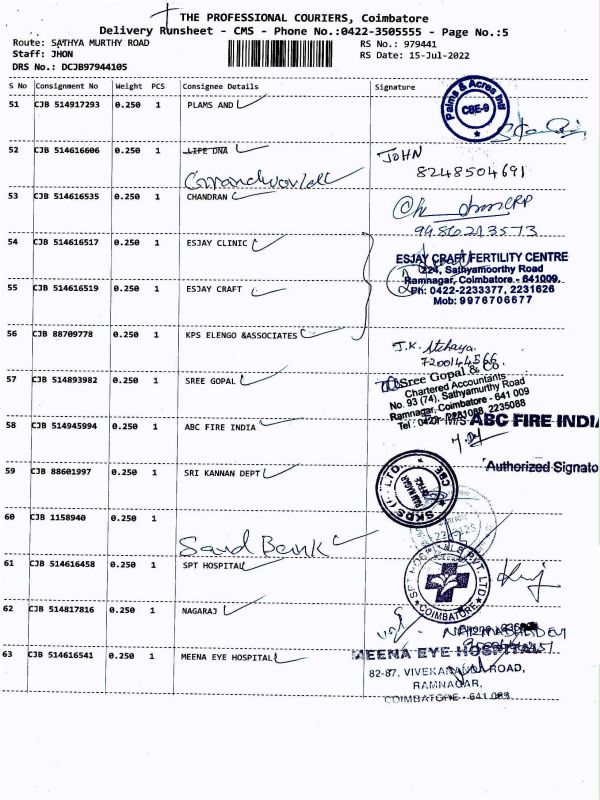 THE PROFESSIONAL COURIERS, Coimbatore
Delivery Runsheet - CMS - Phone No.:0422-3505555 - Page No.:5
Route: SATHYA MURTHY ROAD RS No.: 979441
Staff: JHON RS Date: 15-Jul-2022
DRS No.: DCJB97944105
S No Consignment No Weight PCS Consignee Details Signature
51 CJB 514917293 0.250 1 PLAMS AND
Palms & Acres Ind
CBE-9
52 CJB 514616606 0.250 1 LIFE DNA JOHN
8248504691
53 CJB 514616535 0.250 1 CHANDRAN
9486213573
54 CJB 514616517 0.250 1 ESJAY CLINIC
ESJAY CRAFT FERTILITY CENTRE
224, Sathyamoorthy Road
Ramnagar, Coimbatore - 641009.
Ph: 0422-2233377, 2231626
Mob: 9976706677
55 CJB 514616519 0.250 1 ESJAY CRAFT
56 CJB 88709778 0.250 1 KPS ELENGO &ASSOCIATES
J.K. Atchaya.
7200144566.
57 CJB 514893982 0.250 1 SREE GOPAL
Sree Gopal & Co.
Chartered Accountants
No. 93 (74), Sathyamurthy Road
Ramnagar, Coimbatore - 641 009
Tel : 0422 - 2231088, 2235088
58 CJB 514945994 0.250 1 ABC FIRE INDIA
ABC FIRE INDIA
Authorized Signato
59 CJB 88601997 0.250 1 SRI KANNAN DEPT
SKDS (I) LTD. CBE
RAM NAGAR
OFFICE
60 CJB 1158940 0.250 1
Saud Bank
61 CJB 514616458 0.250 1 SPT HOSPITAL
COIMBATORE
62 CJB 514817816 0.250 1 NAGARAJ
63 CJB 514616541 0.250 1 MEENA EYE HOSPITAL
MEENA EYE HOSPITAL
82-87, VIVEKANANDA ROAD,
RAMNAGAR,
COIMBATORE - 641 009